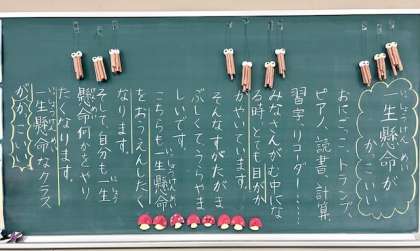 一生懸命が
かっこいい
おにごっこ、トランプ、
ピアノ、読書、計算
習字、リコーダー……
みなさんがむ中にな
る時、とても目がか
がやいています。
そんなすがたがま
ぶしくて、うらやま
しいです。
こちらも一生懸命
をおうえんしたく
なります。
そして、自分も、一生
懸命何かをやり
たくなります。
一生懸命なクラス
がかっこいい